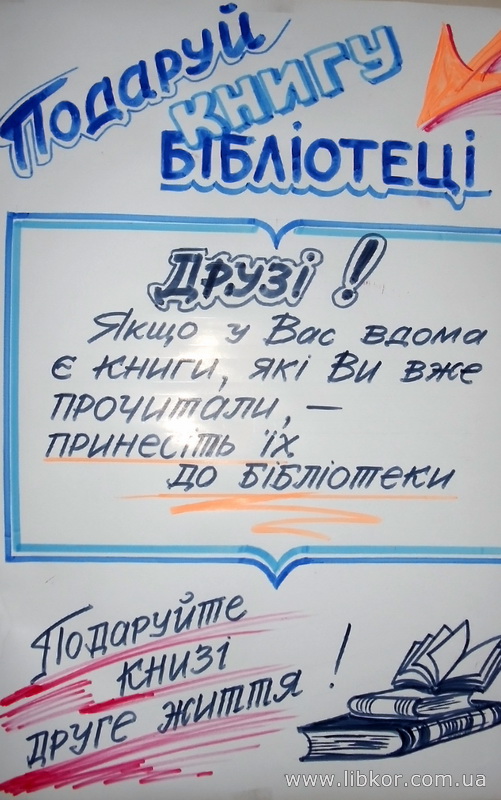 Подаруй
книгу
бібліотеці
Друзі!
Якщо у Вас вдома
є книги, які Ви вже
прочитали, —
принесіть їх
до бібліотеки
Подаруйте
книзі
друге життя!
www.libkor.com.ua